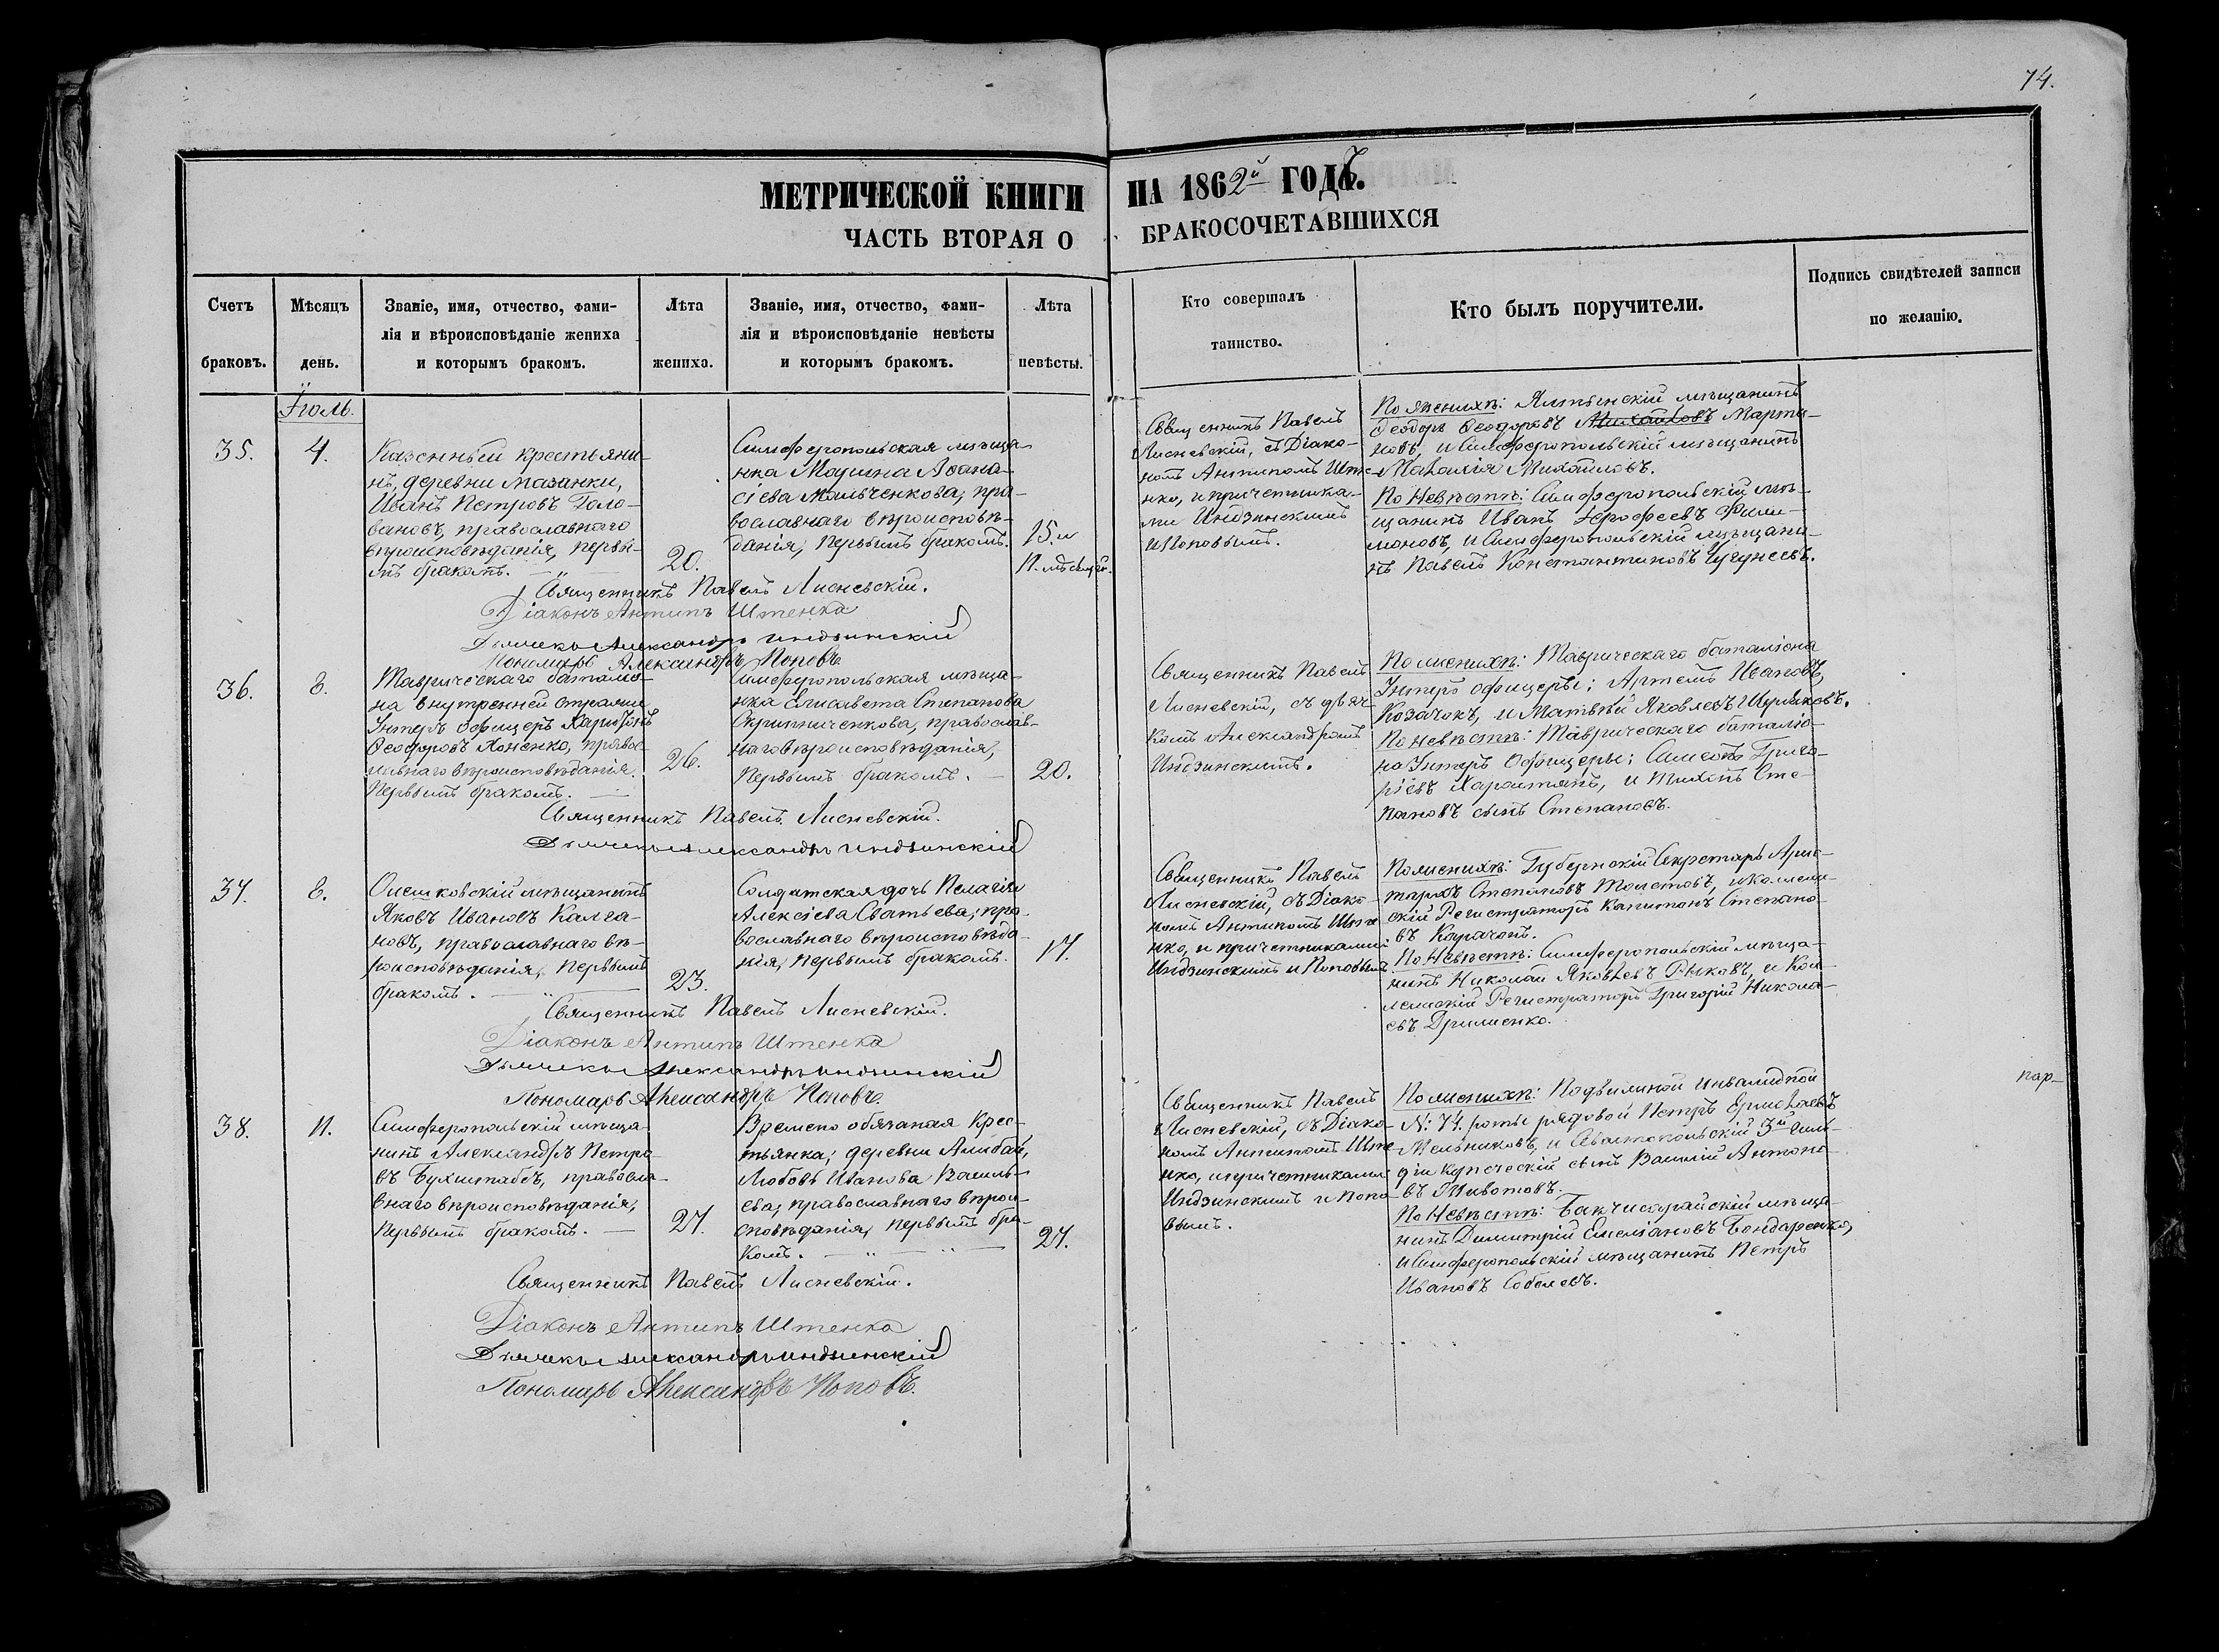 74.
МЕТРИЧЕСКОЙ КНИГИ НА 1862й ГОДЪ.
ЧАСТЬ ВТОРАЯ О БРАКОСОЧЕТАВШИХСЯ
Счетъ браковъ.
Мѣсяцъ день.
Званіе, имя, отчество, фами-
лія и вѣроисповѣданіе жениха
и которымъ бракомъ.
Лѣта жениха.
Званіе, имя, отчество, фами-
лія и вѣроисповѣданіе невѣсты
и которымъ бракомъ.
Лѣта невѣсты.
Кто совершалъ
таинство.
Кто былъ поручители.
Подпись свидѣтелей записи
по желанію.
Іюль.
35.
4.
Казенный крестьяни-
нъ, деревни Мазанки,
Иванъ Петровъ Голо-
вановъ, православнаго
вѣроисповѣданія, первы-
мъ бракомъ.
20.
Симферопольская мѣща-
нка Марина Аѳана-
сіева Мальченкова, пра-
вославнаго вѣроисповѣ-
данія, первымъ бракомъ.
15. и
11. мѣсяцей.
Священникъ Павелъ
Лисневскій, съ Діако-
номъ Антипомъ Ште-
нко, и причетника-
ми Индзинскимъ
и Поповымъ.
По женихѣ: Ялтинскій мѣщанинъ
Ѳеодоръ Ѳеодоровъ Михайловъ Марты-
новъ, и Симферопольскій мѣщанинъ
Михайловъ.
По Невѣстѣ: Симферопольскій мѣ-
щанинъ Иванъ Ерофеевъ Фили-
моновъ, и Симферопольскій мѣщани-
нъ Павелъ Константиновъ Чугунсевъ.
Священникъ Павелъ Лисневскій.
Діаконъ Антипъ Штенка
Дьячекъ Александръ Индзинскій
Пономарь Александръ Поповъ
36.
8.
Таврическаго баталіо-
на внутренней стражи
Унтеръ Офицеръ Харитонъ
Ѳеодоровъ Хоненко, правос-
лавнаго вѣроисповѣданія.
Первымъ бракомъ.
26.
Симферопольская мѣща-
нка Елисавета Степанова
Скрипниченкова, православ-
наго вѣроисповѣданія,
Первымъ бракомъ.
20.
Священникъ Павелъ
Лисневскій, съ дьяч-
комъ Александромъ
Индзинскимъ.
По женихѣ: Таврическаго баталіона
Унтеръ офицеры; Артемъ Ивановъ,
Козачокъ, и Матвѣй Яковлевъ
По невѣстѣ: Таврическаго баталіо-
на Унтеръ Офицеры; Симеонъ Григо-
ріевъ и Тихонъ Сте-
пановъ сынъ Степановъ.
Священникъ Павелъ Лисневскій.
Дьячекъ Александръ Индзинскій
37.
8.
Олешковскій мѣщанинъ
Яковъ Ивановъ Калга-
новъ, православнаго вѣ-
роисповѣданія, Первымъ
бракомъ.
23.
Солдатская дочь Пелагія
Алексіева Сватьева, пра-
вославнаго вѣроисповѣда-
нія, первымъ бракомъ.
17.
Священникъ Павелъ
Лисневскій, съ Діако-
номъ Антипомъ Ште-
нко, и причетниками
Индзинскимъ и Поповымъ.
По женихѣ: Губернскій Секретарь Арис-
тархъ Степановъ Толстовъ, и Коллеж-
скій Регистраторъ Капитонъ Степано-
въ
По Невѣстѣ: Симферопольскій мѣща-
нинъ Николай Яковлевъ Рыковъ, и Кол-
лежскій Регистраторъ Григорій Никола-
евъ
Священникъ Павелъ Лисневскій.
Діаконъ Антипъ Штенка
Дьячекъ Александръ Индзинскій
Пономарь Александръ Поповъ
38.
11.
Симферопольскій мѣща-
нинъ Александръ Петро-
въ Бухштабъ, правосла-
внаго вѣроисповѣданія,
Первымъ бракомъ.
27.
Времено обязаная Крес-
тьянка; деревни Алибай,
Любовь Иванова Василь-
ева, православнаго вѣрои-
сповѣданія, первымъ бра-
комъ.
27.
Священникъ Павелъ
Лисневскій, съ Діако-
номъ Антипомъ Ште-
нко, и причетниками
Индзинскимъ и Попо-
вымъ.
По женихѣ: Подвижной инвалидной
№: 74. роты рядовой Петръ Ермолаевъ
Мельниковъ, и Севастопольскій 3й гиль-
діи Купеческій сынъ Василій Антоно-
въ Животовъ.
По Невѣстѣ: Бакчисарайскій мѣща-
нинъ Димитрій Емеліановъ Бондаренко,
и Симферопольскій мѣщанинъ Петръ
Ивановъ Соболевъ.
Священникъ Павелъ Лисневскій.
Діаконъ Антипъ Штенка
Дьячекъ Александръ Индзинскій
Пономарь Александръ Поповъ.